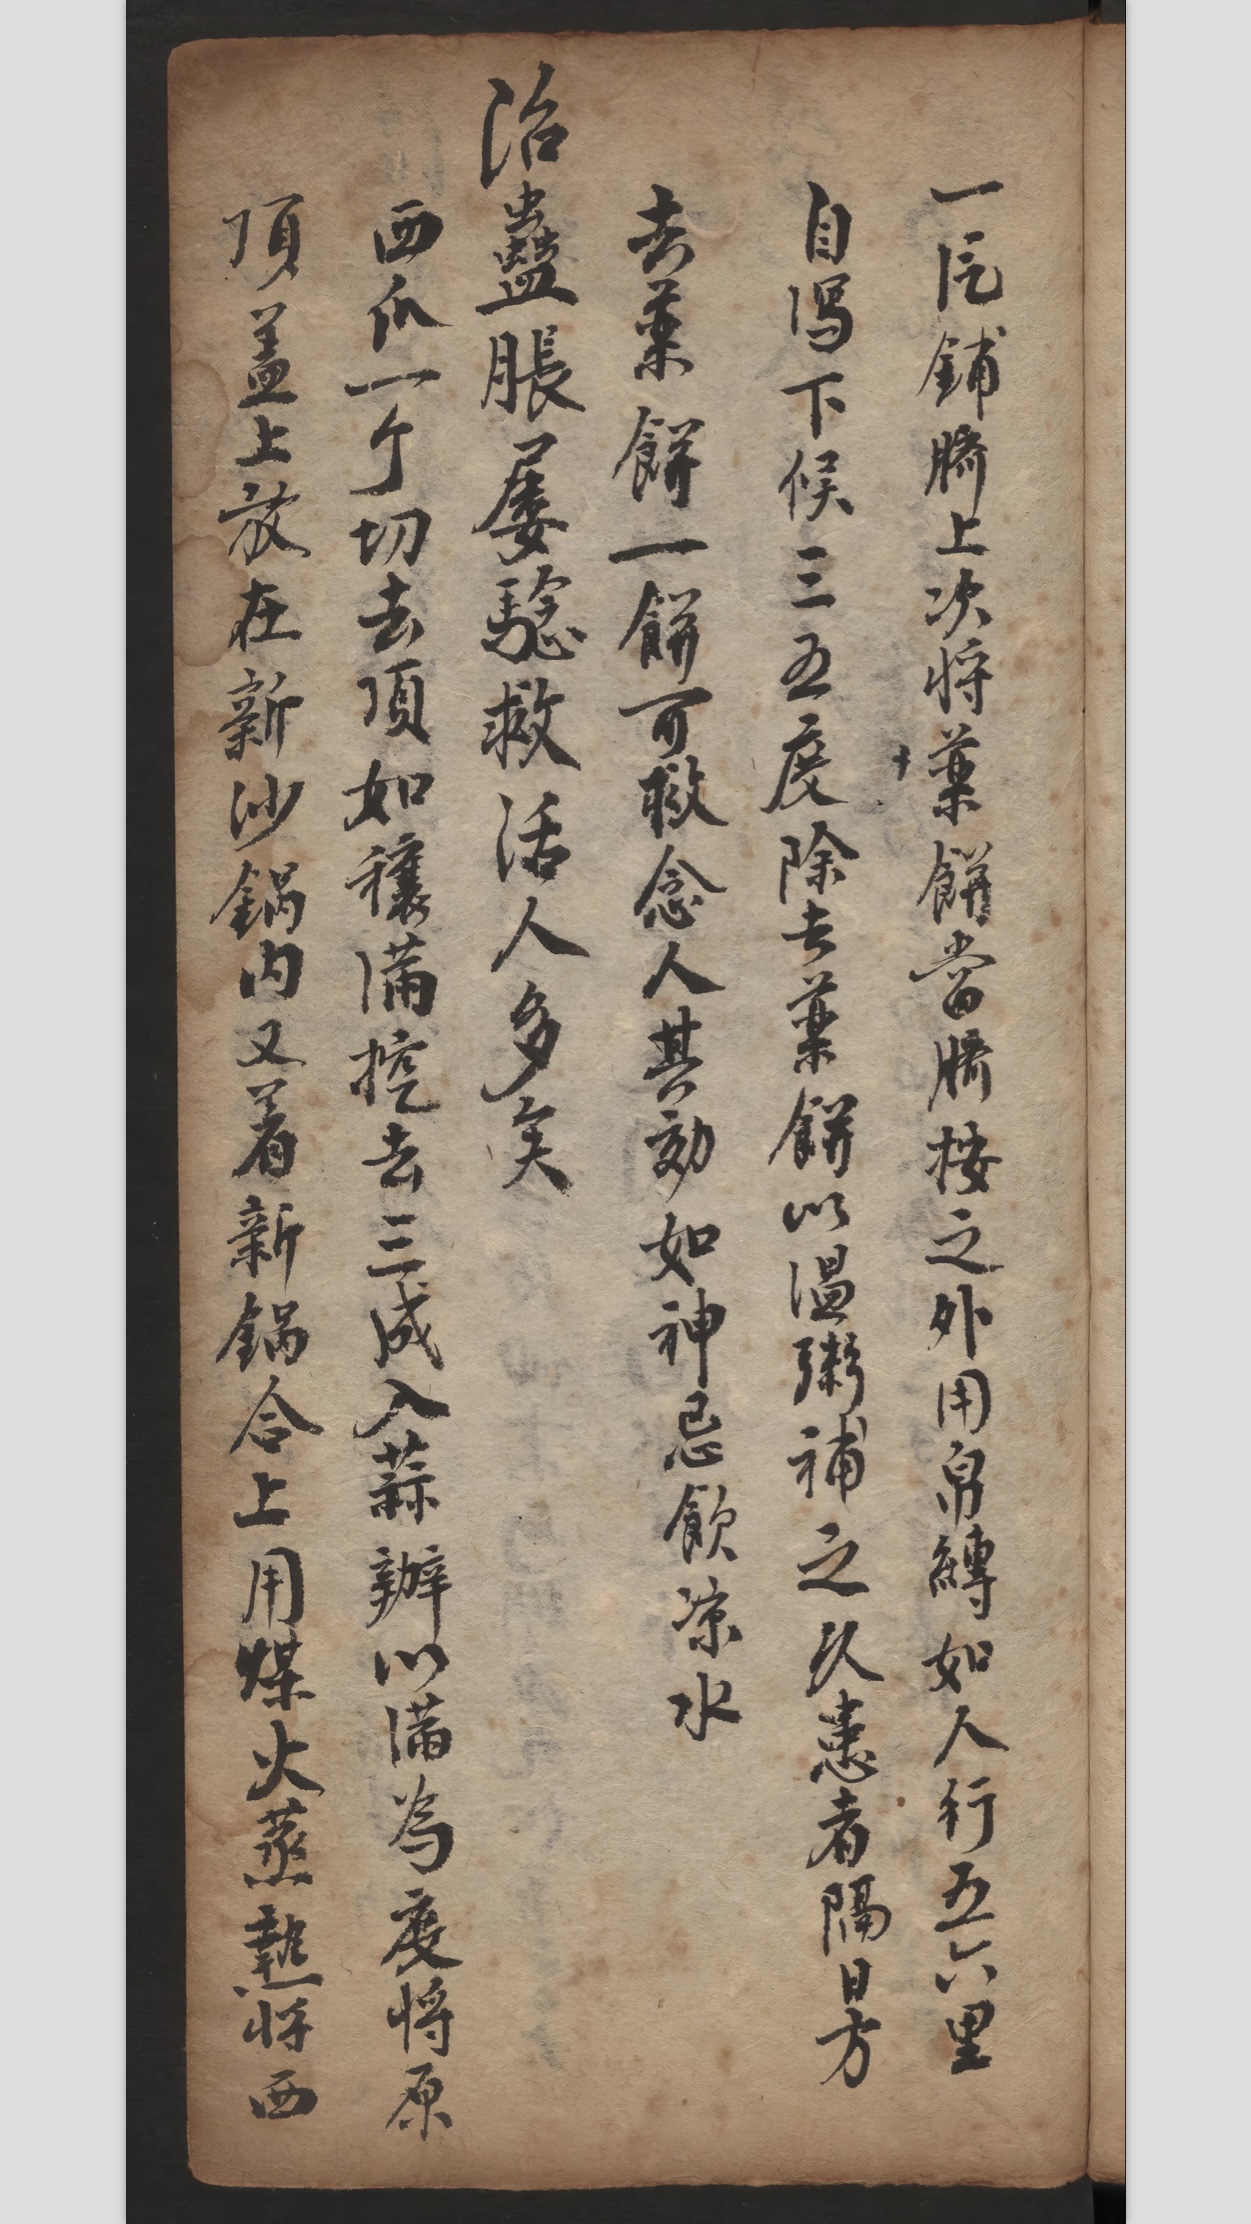 一匞鋪臍上次将藥餅當臍按之外用帛縳如人行五六里
自瀉下候三五度除去藥餅以温粥補之久患者隔日方
去藥餅一餅可救念人其効如神忌飲凉水
治蠱脹屡騐救活人多矣
西瓜一个切去頂如穰满挖去三成入蒜辦以满為度将原
頂盖上放在新沙鍋内又着新鍋合上用煤火蒸熟将西